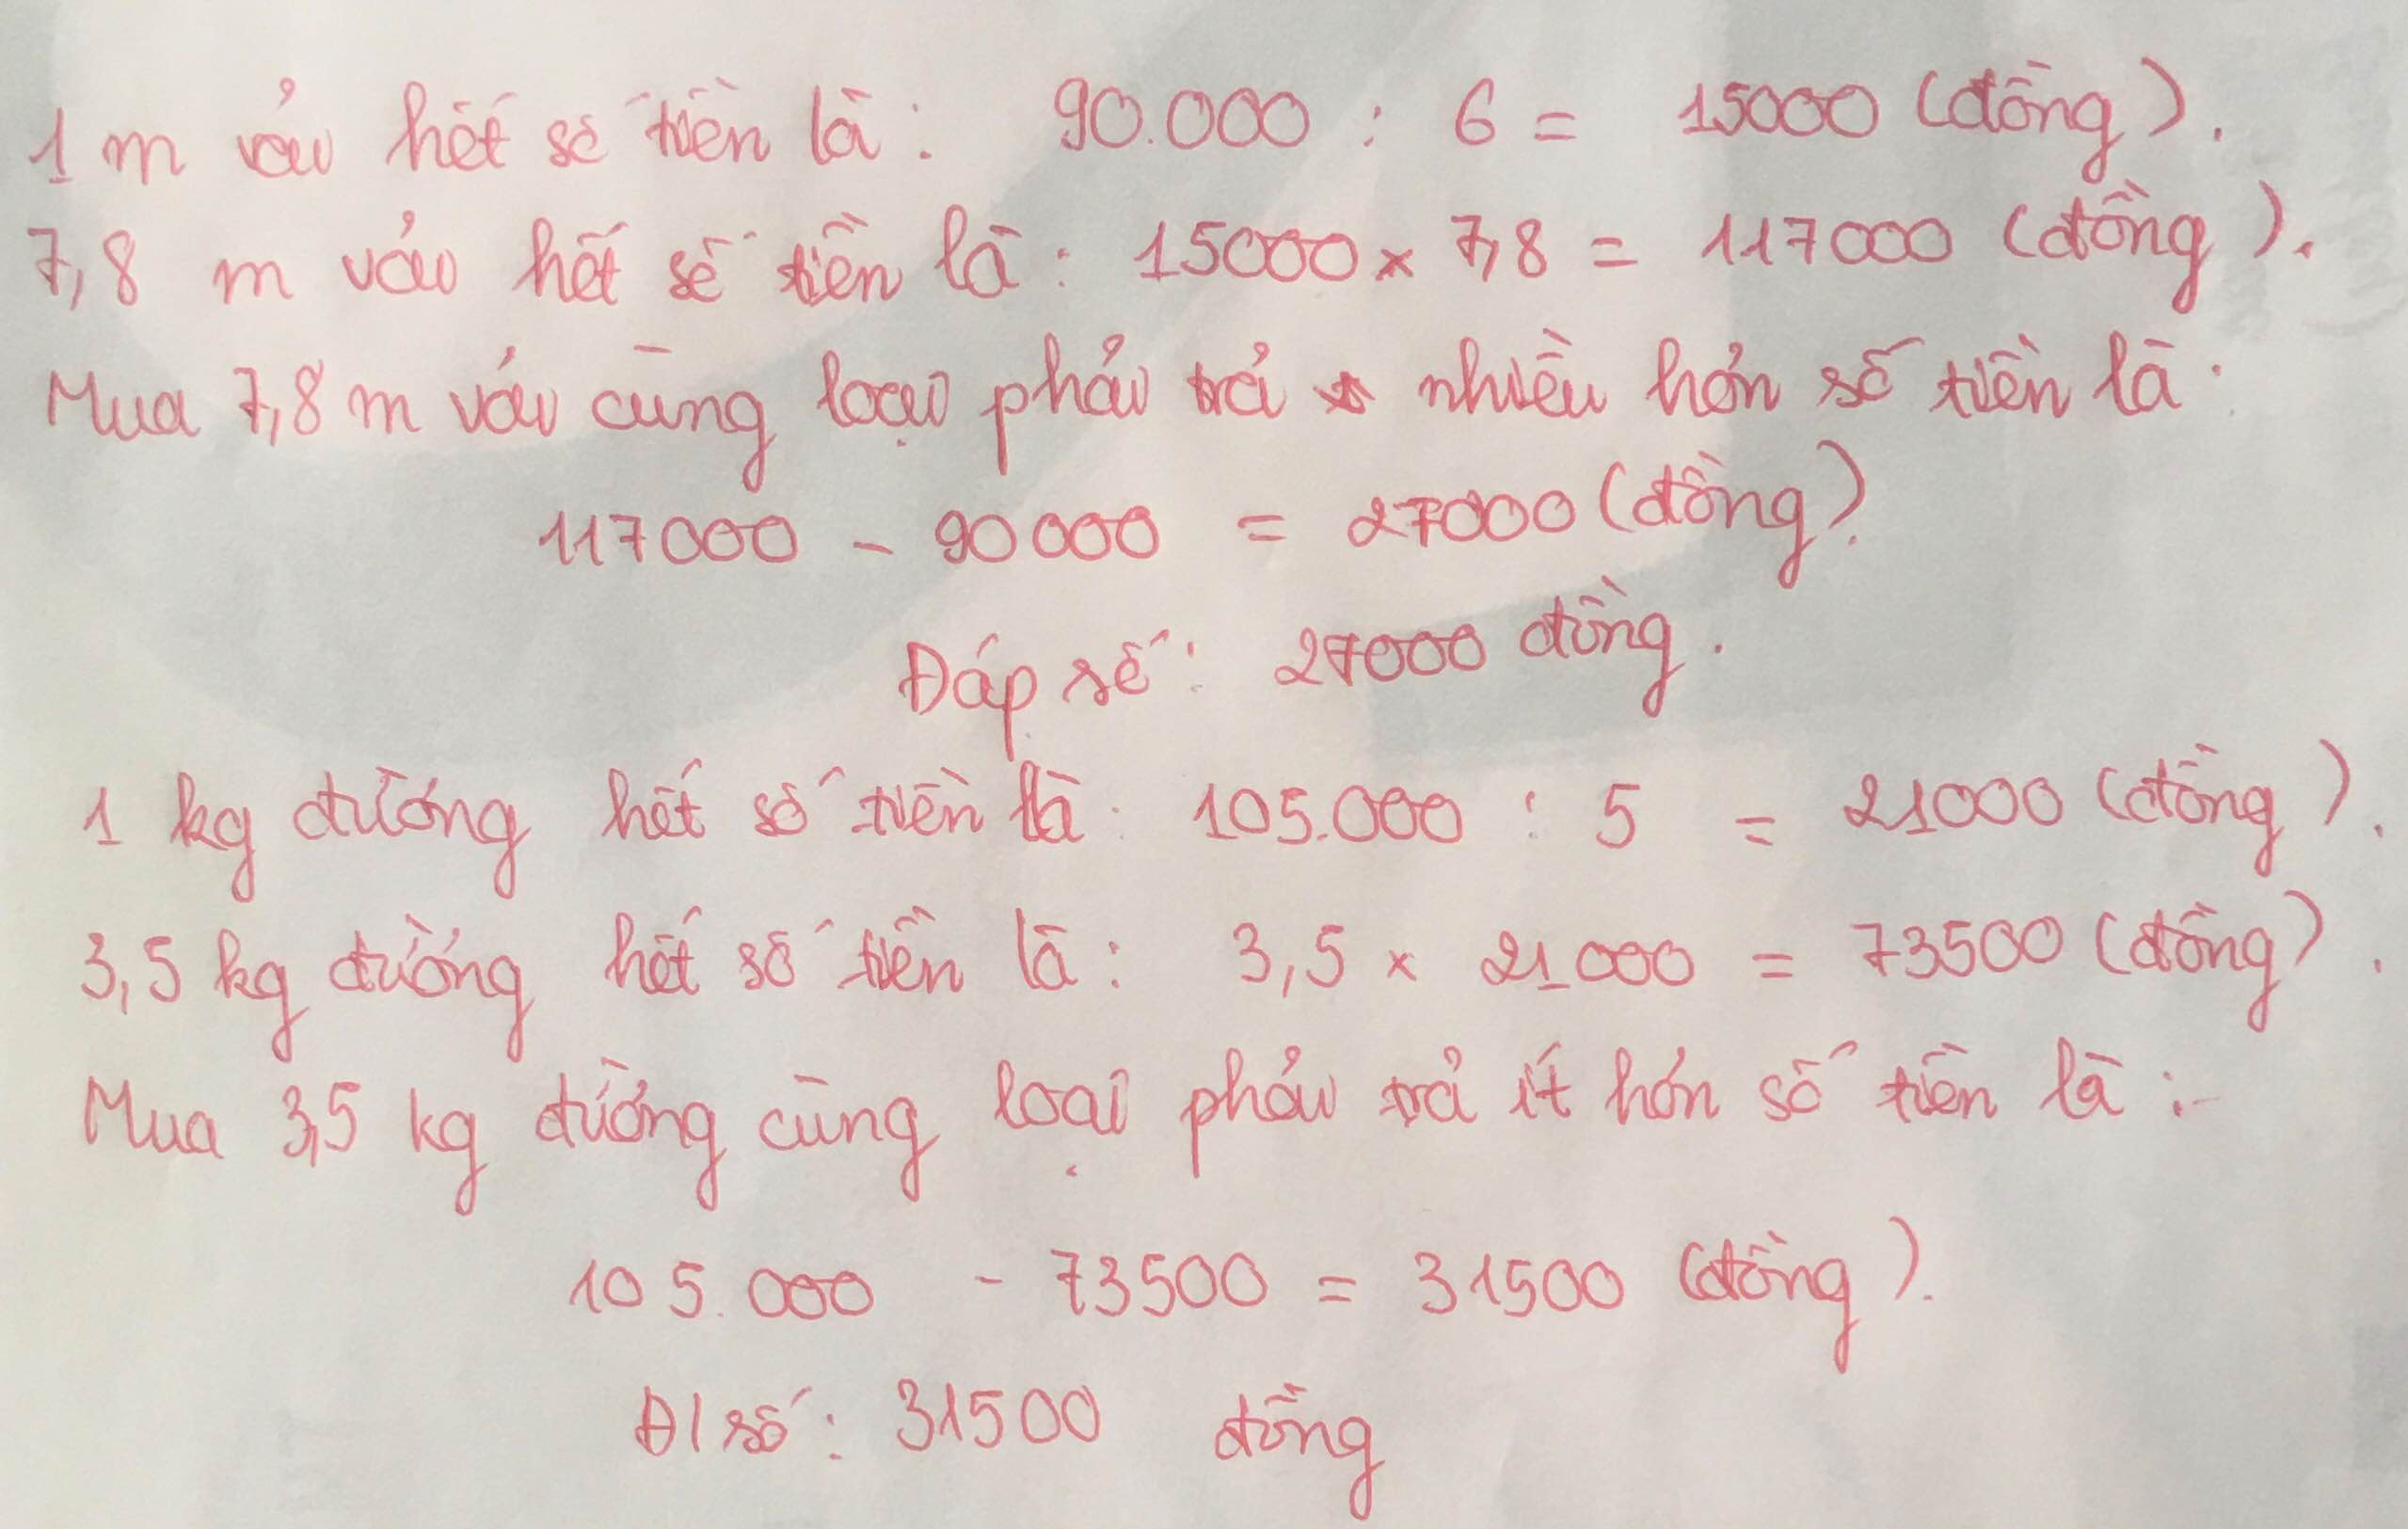 1 m vải hết số tiền là: 90.000 : 6 = 15000 (đồng).
7,8 m vải hết số tiền là: 15000 x 7,8 = 117000 (đồng).
Mua 7,8 m vải cùng loại phải trả nhiều hơn số tiền là:
117000 - 90000 = 27000 (đồng).
Đáp số: 27000 đồng.
1 kg đường hết số tiền là: 105.000 : 5 = 21000 (đồng).
3,5 kg đường hết số tiền là: 3,5 x 21000 = 73500 (đồng).
Mua 3,5 kg đường cùng loại phải trả ít hơn số tiền là:
105.000 - 73500 = 31500 (đồng).
Đ/số: 31500 đồng